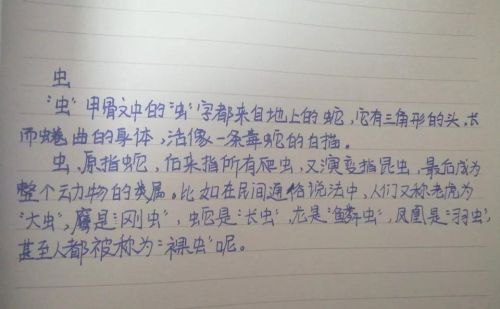 虫
“虫”甲骨文中的“虫”字都来自地上的蛇,它有三角形的头,长
而蜷曲的身体,活像一条毒蛇的白描。
虫,原指蛇,后来指所有爬虫,又演变指昆虫,最后成为
整个动物的类属。比如在民间通俗说法中,人们又称老虎为
“大虫”,鹰是“刚虫”,蛇是“长虫”,龙是“鳞虫”,凤凰是“羽虫”,
甚至人都被称为“裸虫”呢。